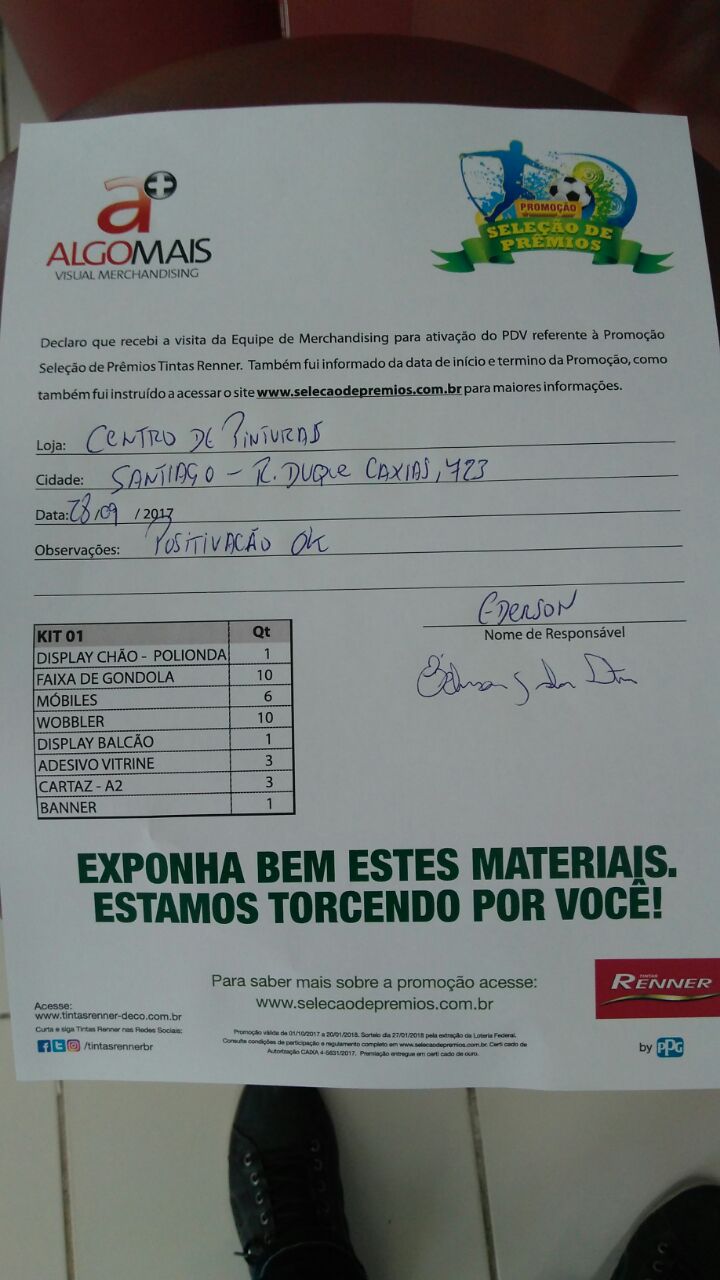 a+
ALGOMAIS
VISUAL MERCHANDISING
PROMOÇÃO
SELEÇÃO DE
PRÊMIOS
Declaro que recebi a visita da Equipe de Merchandising para ativação do PDV referente à Promoção
Seleção de Prêmios Tintas Renner. Também fui informado da data de início e termino da Promoção, como
também fui instruído a acessar o site www.selecaodepremios.com.br para maiores informações.
Loja: CENTRO DE PINTURAS
Cidade: SANTIAGO - R. DUQUE CAXIAS, 723
Data: 28/09 /2017
Observações: POSITIVAÇÃO OK
EDERSON
Nome de Responsável
KIT 01 Qt
DISPLAY CHÃO - POLIONDA 1
FAIXA DE GONDOLA 10
MÓBILES 6
WOBBLER 10
DISPLAY BALCÃO 1
ADESIVO VITRINE 3
CARTAZ - A2 3
BANNER 1
EXPONHA BEM ESTES MATERIAIS.
ESTAMOS TORCENDO POR VOCÊ!
Para saber mais sobre a promoção acesse:
www.selecaodepremios.com.br
TINTAS
RENNER
Acesse:
www.tintasrenner-deco.com.br
Curta e siga Tintas Renner nas Redes Sociais:
/tintasrennerbr
Promoção válida de 01/10/2017 a 20/01/2018. Sorteio dia 27/01/2018 pela extração da Loteria Federal.
Consulte condições de participação e regulamento completo em www.selecaodepremios.com.br. Certi cado de
Autorização CAIXA 4-5631/2017. Premiação entregue em certi cado de ouro.
by PPG